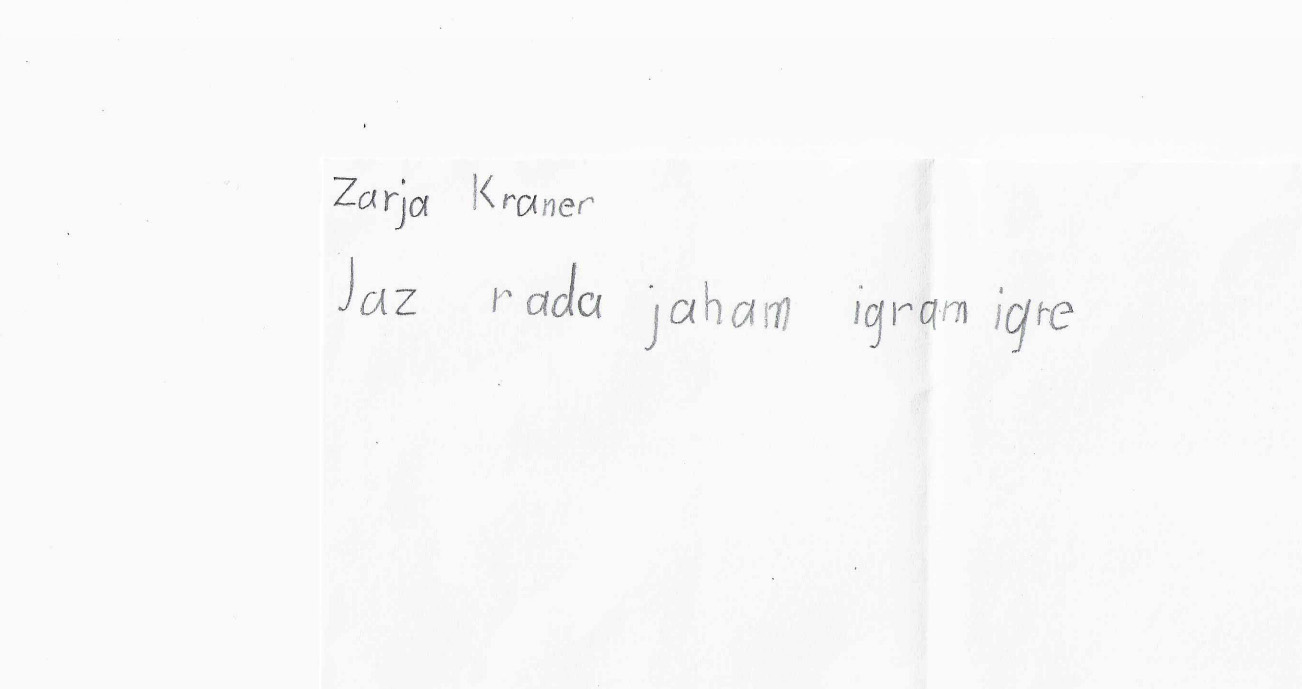 Zarja Kraner
Jaz rada jaham igram igre